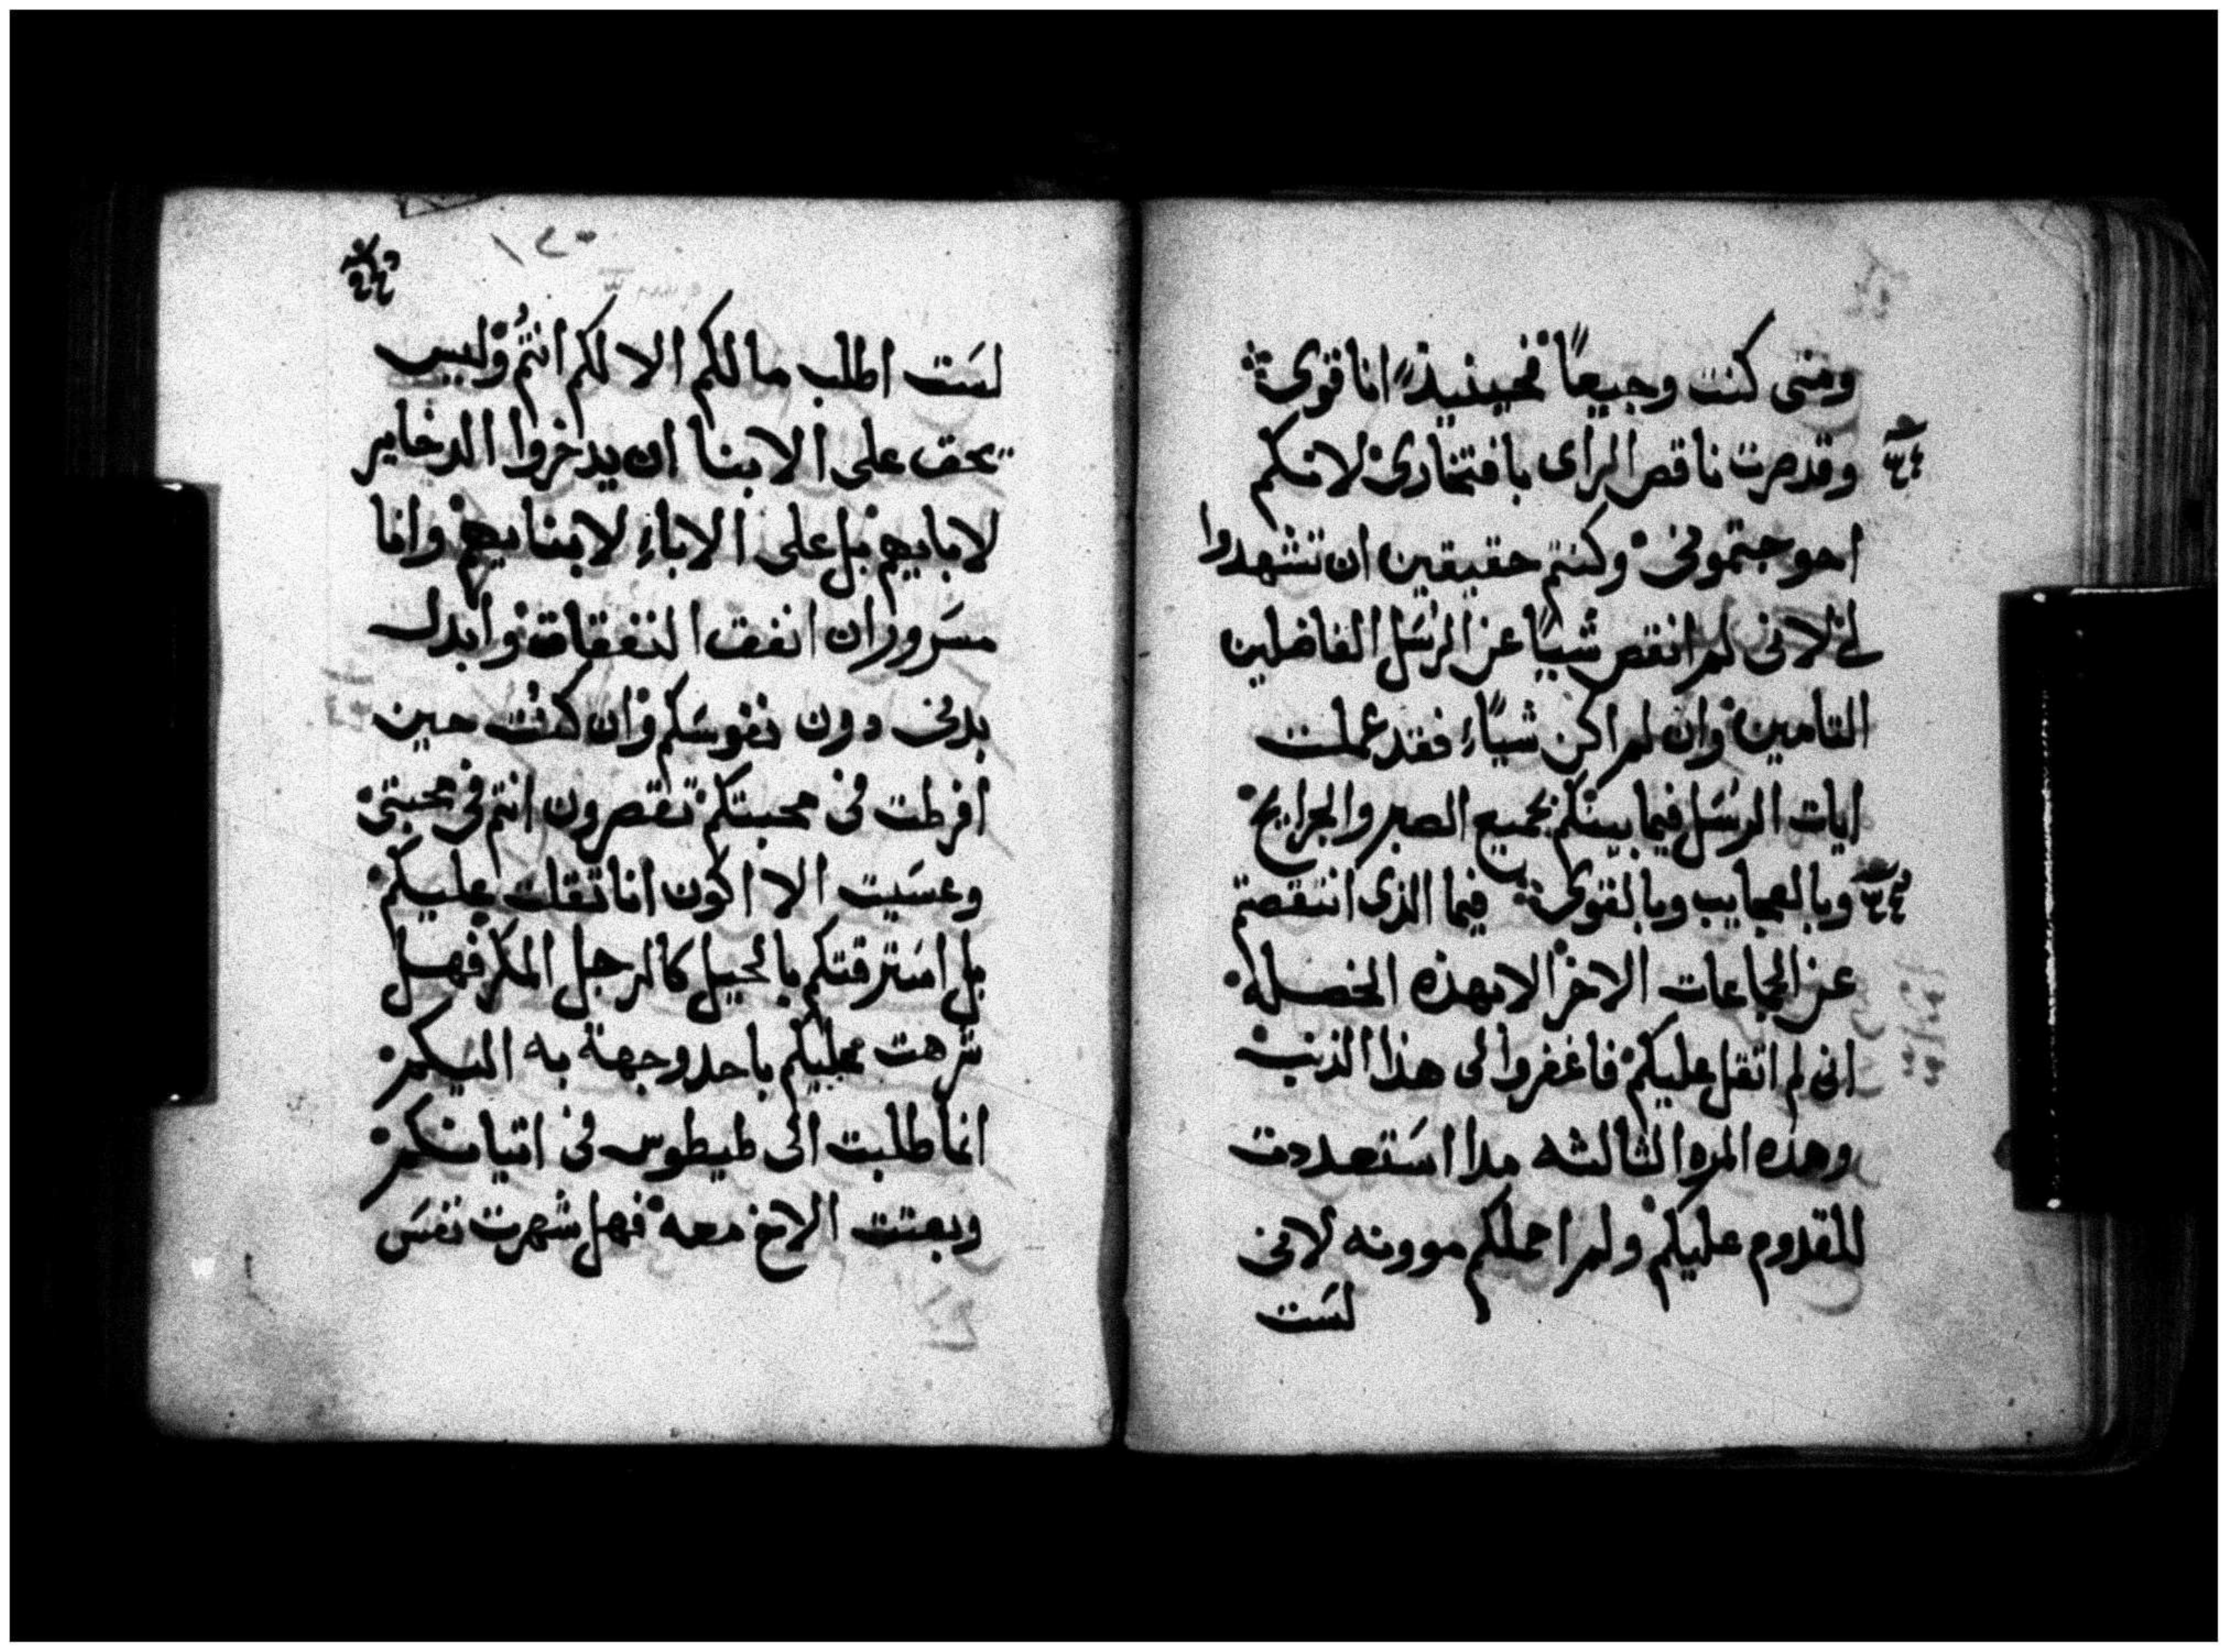 ومتى كنت وجيعًا فحينيذٍ انا قوى
وقد صرت ناقص الراى بافتخارى لانكم
احوجتمونى وكنتم حقيقين ان تشهدوا
لى لانى لم انقص شيًا عن الرسَل الفاضلين
التامين وان لم اكن شيًاء فقد عملت
ايات الرسَل فيما بينكم بجميع الصبر والجرايح
وبالعجايب وبالقوى فيما الذى انتقصتم
عن الجماعات الاخر الا بهذه الخصله
انى لم اثقل عليكم فاغفروا لى هذا الذنب
وهذه المره الثالثه مدا استعددت
للقدوم عليكم ولم احملكم موونه لانى
لسَت
لسَت اطلب مالكم الا لكم انتُم وليس
يحق على الابنا ان يدخروا الدخاير
لابايهم بل على الاباءِ لابنايهم وانا
مسَرور ان انفق النفقات وابدل
بدنى دون نفوسَكم وان كنت حين
افرطت فى محبتكم تقصرون انتم فى محبتى
وعسَيت الا اكون انا ثقلت عليكم
بل استرقتكم بالحيل كالرجل المكر فهل
شرهت عليكم باحد وجهة به اليكم
انما طلبت الى طيطوس فى اتيانكم
وبعتت الاخ معه فهل شهرت نفسَ